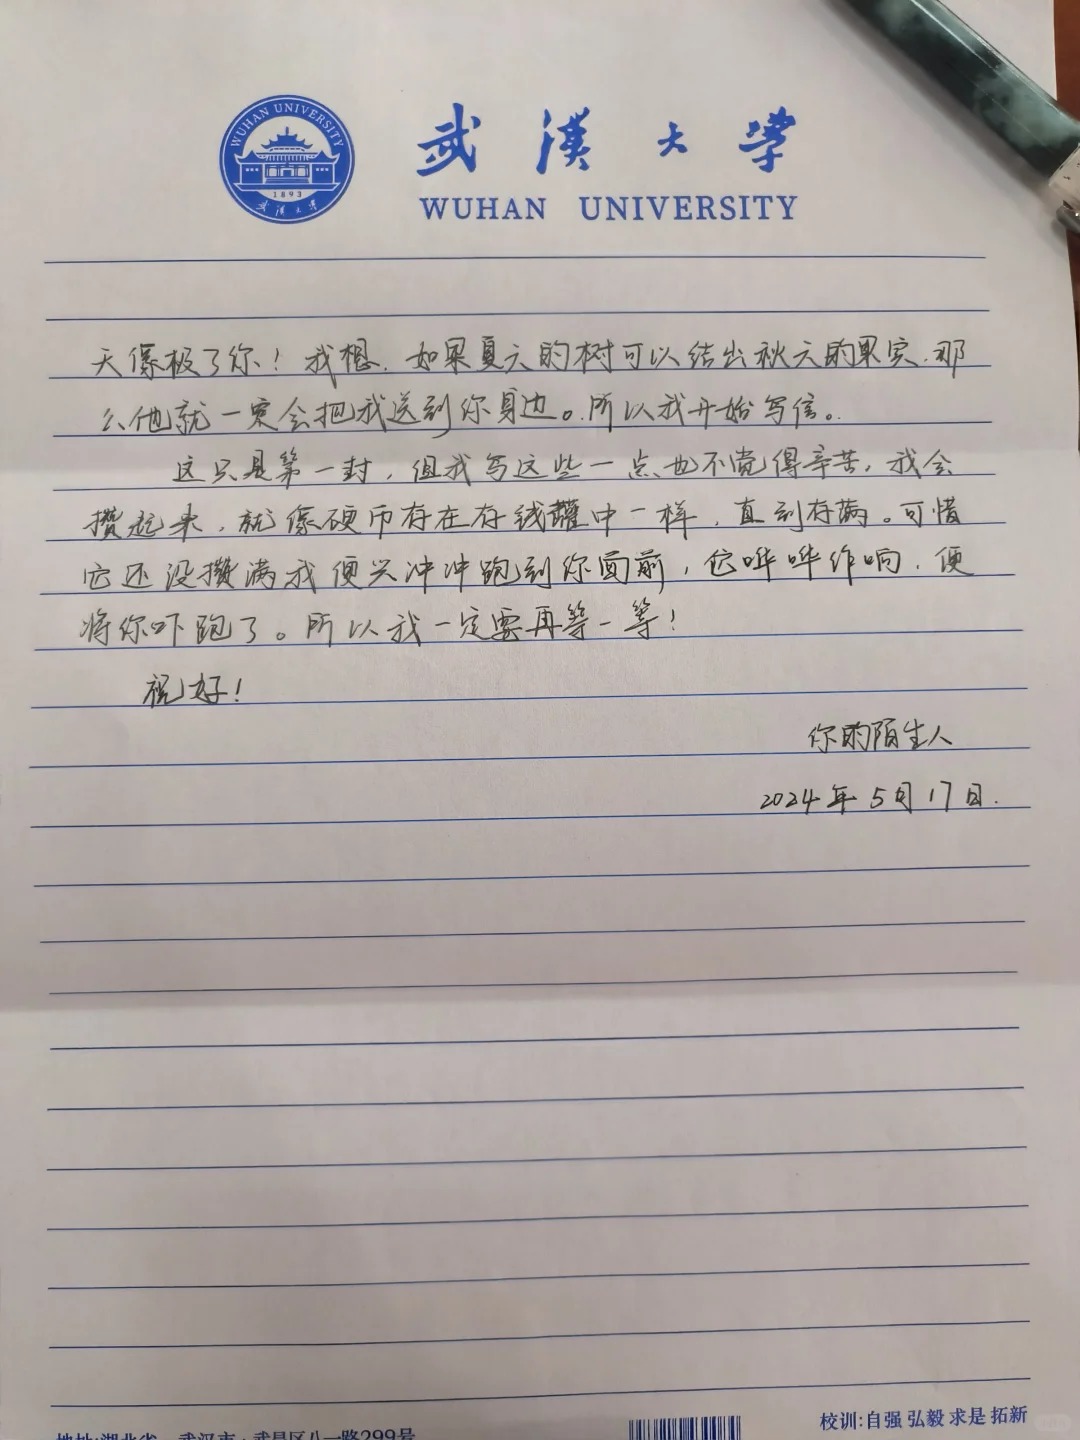 WUHAN UNIVERSITY
1893
武汉大学
武汉大学
WUHAN UNIVERSITY
天像极了你！我想，如果夏天的树可以结出秋天的果实，那
么他就一定会把我送到你身边。所以我开始写信。
这只是第一封，但我写这些一点也不觉得辛苦，我会
攒起来，就像硬币存在存钱罐中一样，直到存满。可惜
它还没攒满我便兴冲冲跑到你面前，它哗哗作响，便
将你吓跑了。所以我一定要再等一等！
祝好！
你的陌生人
2024年5月17日.
校训:自强 弘毅 求是 拓新
地址:湖北省 武汉市·武昌区八一路299号